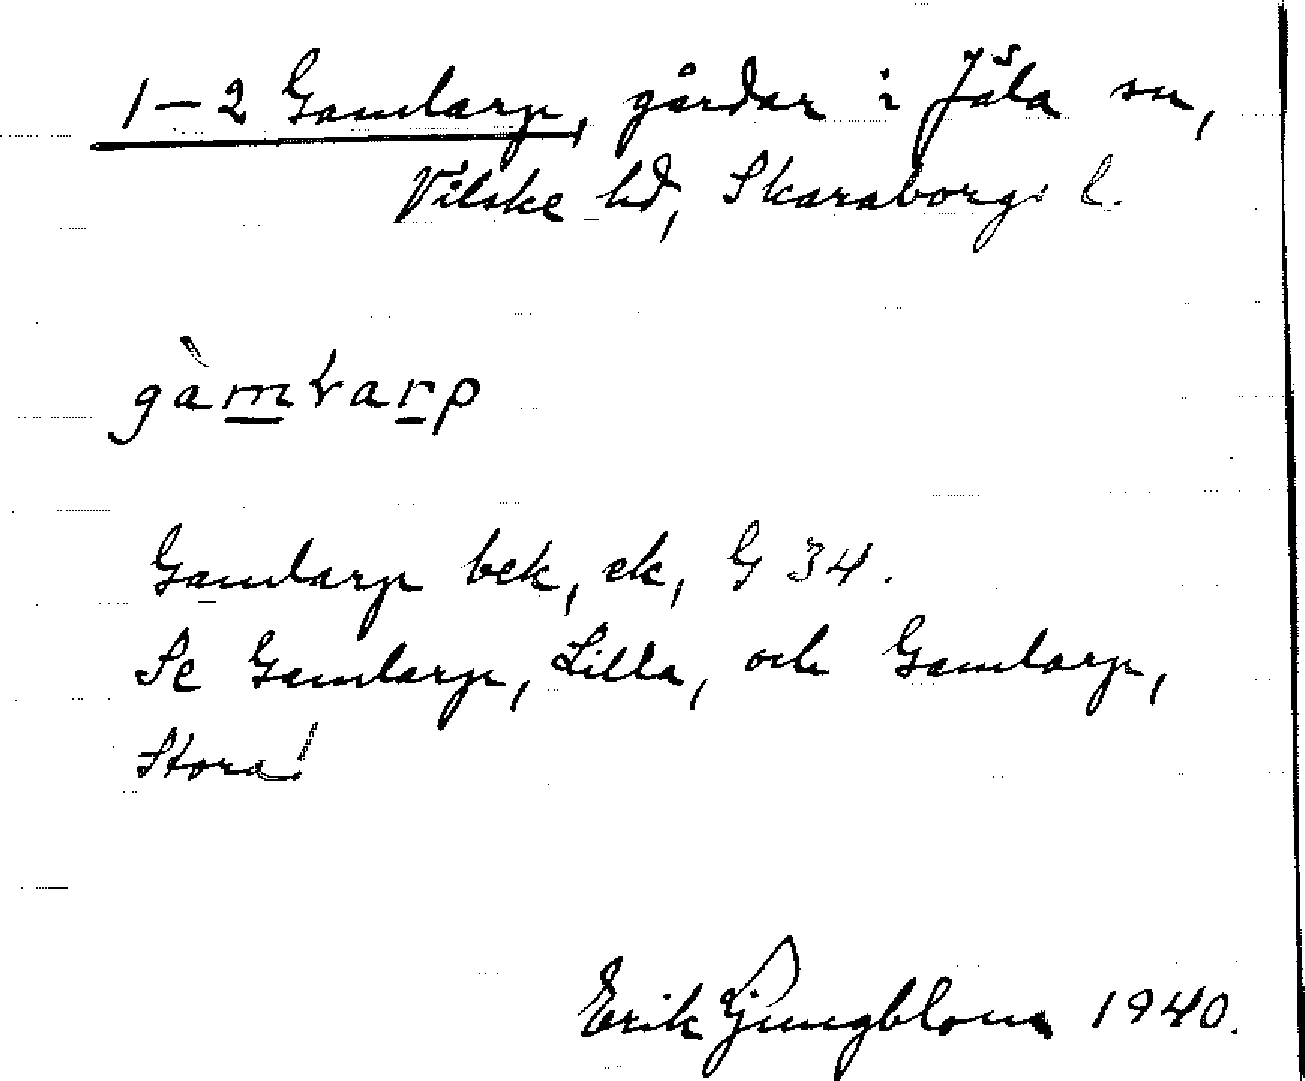 1–2 Gamlarp, gårdar i Jäla sn,
Vilske hd, Skaraborgs l.
gàmlarp
Gamlarp bek, ek, G 34.
Se Gamlarp, Lilla, och Gamlarp,
Stora!
Erik Ljungblom 1940.